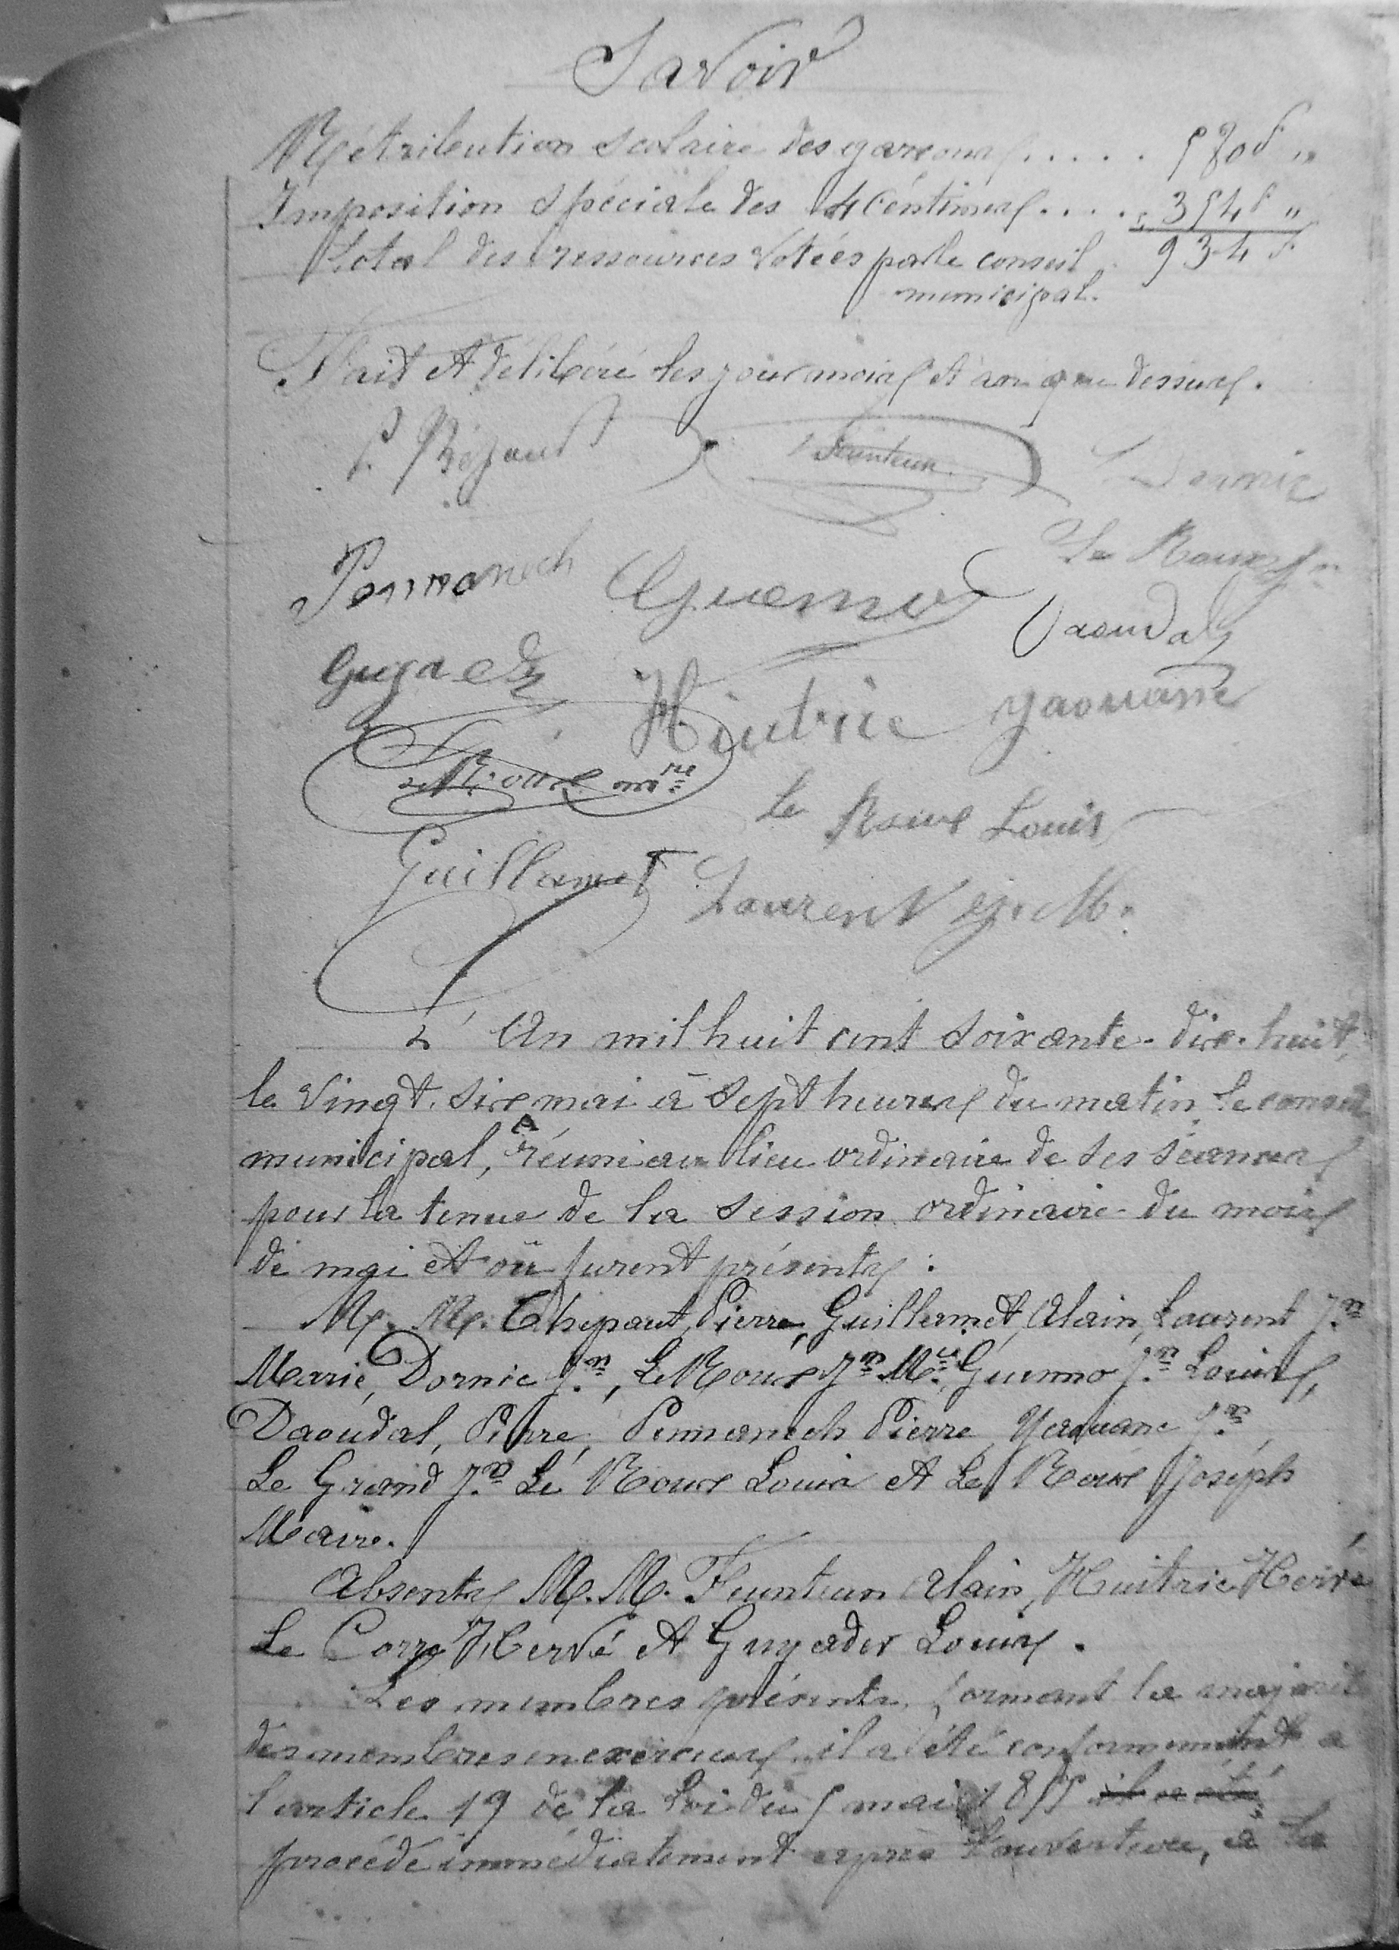 Savoir
Rétribution scolaire des garçons..... 580f "
Imposition spéciale des 4 Céntimes..... 354f "
Total des ressources votées par le conseil 934f
municipal.
Fait et délibéré les jour mois et an que dessus.
Feunteun
L Dornic
Pennanech Guenno Le Roux Jn
Daoudal
Guyader Huitric Yaouanc
Le Roux mre
le Roux Louis
Guillamet Laurent J. M.
L'An mil huit cent soixante-dix-huit,
le vingt-six mai à sept heures du matin le conseil
municipal, réuni au lieu ordinaire de ses séances
pour la tenue de la session ordinaire du mois
de mai et où furent présents:
M. M. Chipaut Pierre, Guillermet, Alain, Laurent Jn
Marie, Dornic Jn, Le Roux Jn Mie, Guenno Jn Louis,
Daoudal, Pierre, Pennanech Pierre, Yaouanc Jn
Le Grand Jn Le Roux Louis et Le Roux Joseph
Maire.
Absents M. M. Feunteun Alain, Huitric Hervé
Le Corre Hervé et Guyader Louis.
Les membres présents formant la majorité
des membres en exercice, il a été conformément à
l'article 19 de la loi du 5 mai 1855 il a été
procédé immédiatement après l'ouverture, à la